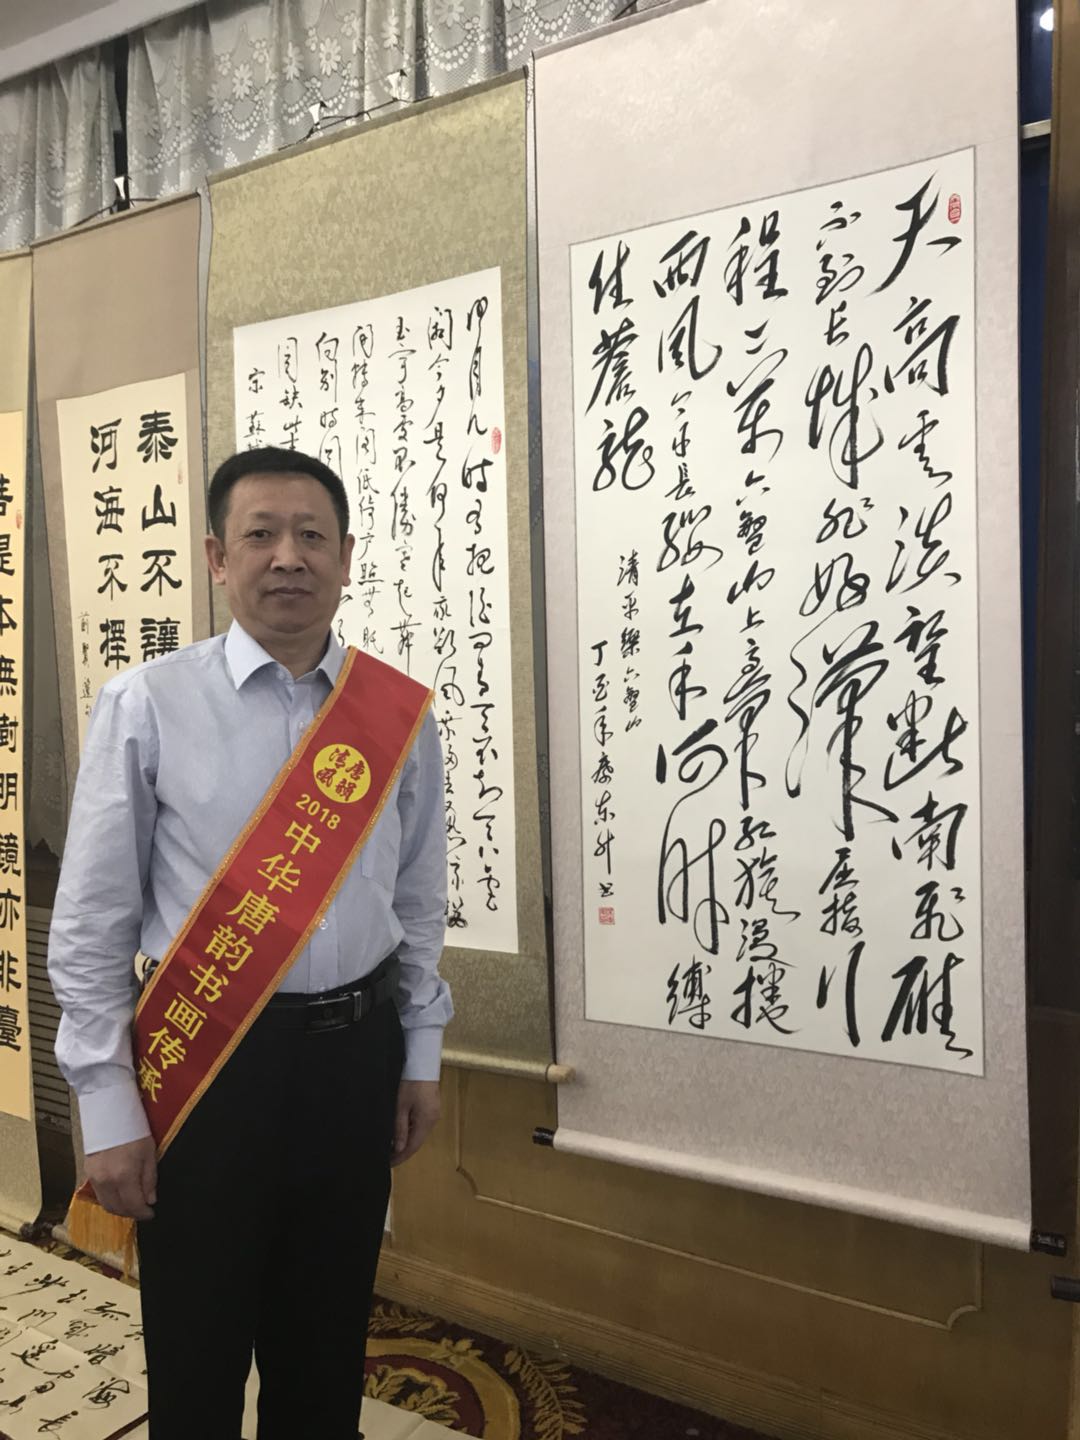 天高云淡望断南飛雁
不到长城非好漢屈指行
程二万六盤山上高峰红旗漫捲
西風今日长缨在手何时缚
住蒼龍
清平樂六盤山
丁酉年秦东升书
明月几时有把酒问青天不知天上宫
阙今夕是何年我欲乘风归去又恐琼楼
玉宇高处不胜寒起舞
间转朱阁低绮户照无眠
向别时圆
圆缺此事
宋 蘇
泰山不讓
河海不擇
菩提本無樹明鏡亦非臺
唐韻
清風
2018
中华唐韵书画传承